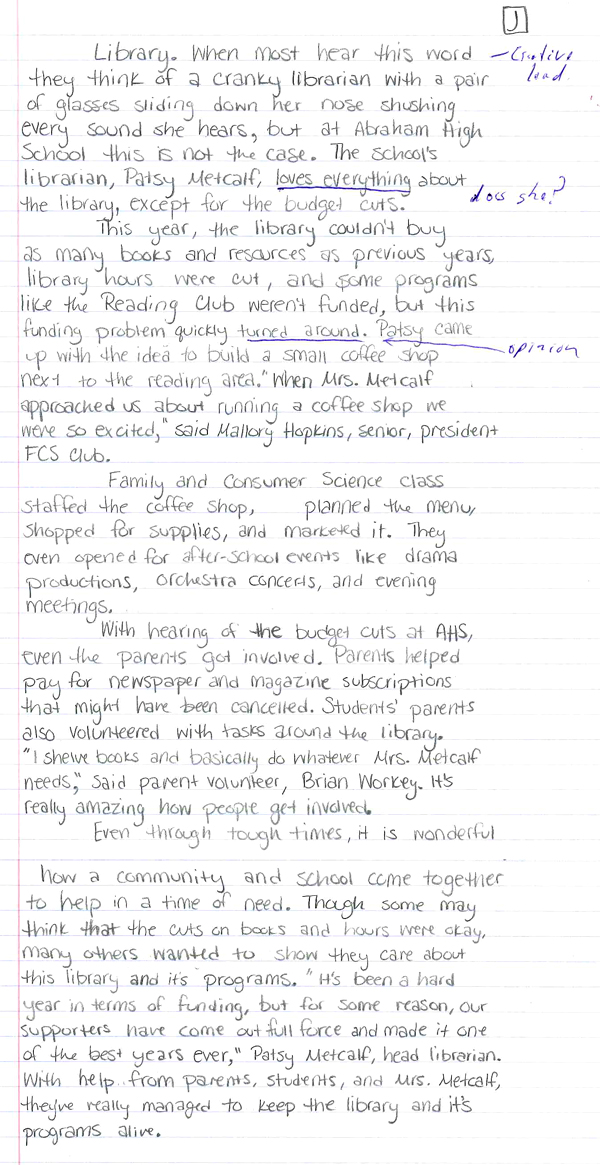 J
Library. When most hear this word - Creative
they think of a cranky librarian with a pair lead
of glasses sliding down her nose shushing
every sound she hears, but at Abraham High
School this is not the case. The school's
librarian, Patsy Metcalf, loves everything about
the library, except for the budget cuts. does she?
This year, the library couldn't buy
as many books and resources as previous years,
library hours were cut, and some programs
like the Reading Club weren't funded, but this
funding problem quickly turned around. Patsy came
up with the idea to build a small coffee shop opinion
next to the reading area. "When Mrs. Metcalf
approached us about running a coffee shop we
were so excited," said Mallory Hopkins, senior, president
FCS Club.
Family and Consumer Science class
staffed the coffee shop, planned the menu,
shopped for supplies, and marketed it. They
even opened for after-school events like drama
productions, orchestra concerts, and evening
meetings.
With hearing of the budget cuts at AHS,
even the parents got involved. Parents helped
pay for newspaper and magazine subscriptions
that might have been cancelled. Students' parents
also volunteered with tasks around the library.
"I shelve books and basically do whatever Mrs. Metcalf
needs," said parent volunteer, Brian Workey. It's
really amazing how people get involved.
Even through tough times, it is wonderful
how a community and school come together
to help in a time of need. Though some may
think that the cuts on books and hours were okay,
many others wanted to show they care about
this library and it's programs. "It's been a hard
year in terms of funding, but for some reason, our
supporters have come out full force and made it one
of the best years ever," Patsy Metcalf, head librarian.
With help from parents, students, and Mrs. Metcalf,
they've really managed to keep the library and it's
programs alive.